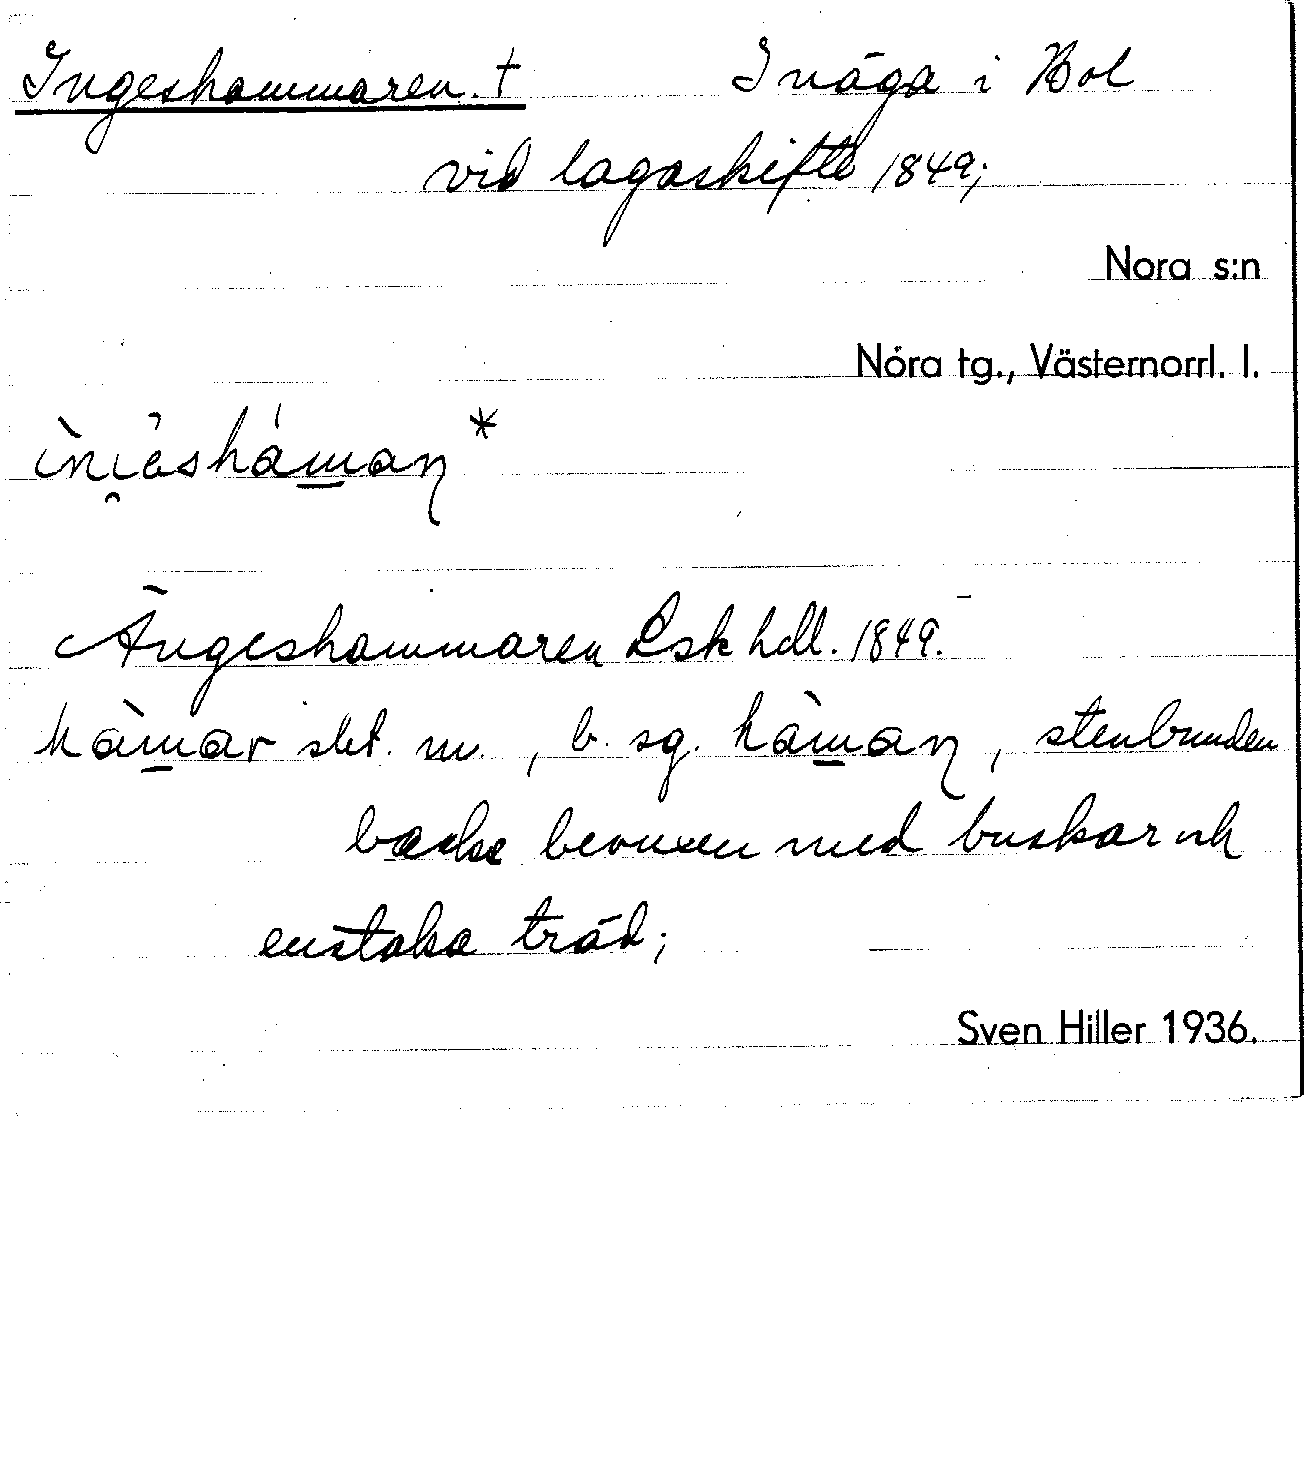 Ingeshammaren. † Inäga i Bol
vid lagaskifte 1849;
Nora s:n
Nora tg., Västernorrl. l.
*
Ängeshammaren Lsk hdl. 1849.
hàmar sbt. m., b. sg. hàmaɳ, stenbunden
backe bevuxen med buskar och
enstaka träd;
Sven Hiller 1936.